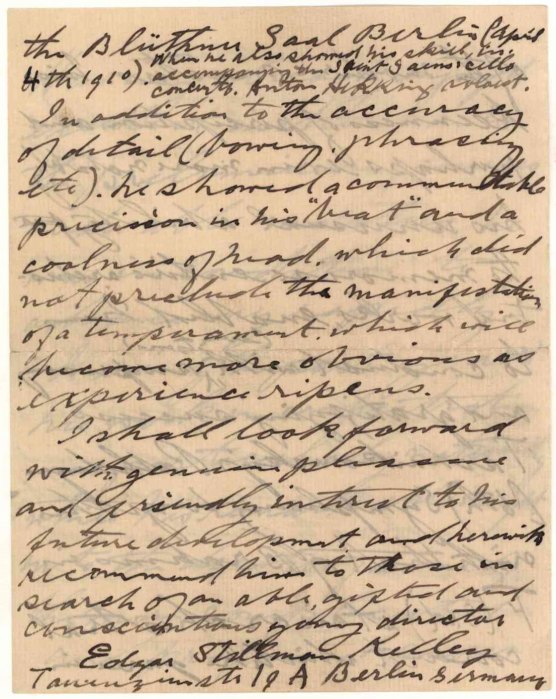 the Blüthner Saal Berlin (April
4th 1910). When he also showed his skill in
accompanying the Saint Saens cello
concerto. Anton Hekking soloist.
In addition to the accuracy
of detail (bowing, phrasing
etc). he showed a commendable
precision in his "beat" and a
coolness of head, which did
not preclude the manifestation
of a temperament, which will
become more obvious as
experience ripens.
I shall look forward
with genuine pleasure
and friendly interest to his
future development and herewith
recommend him to those in
search of an able, gifted and
conscientious young director
Edgar Stillman Kelley
Tauenzienstr 19 A Berlin Germany